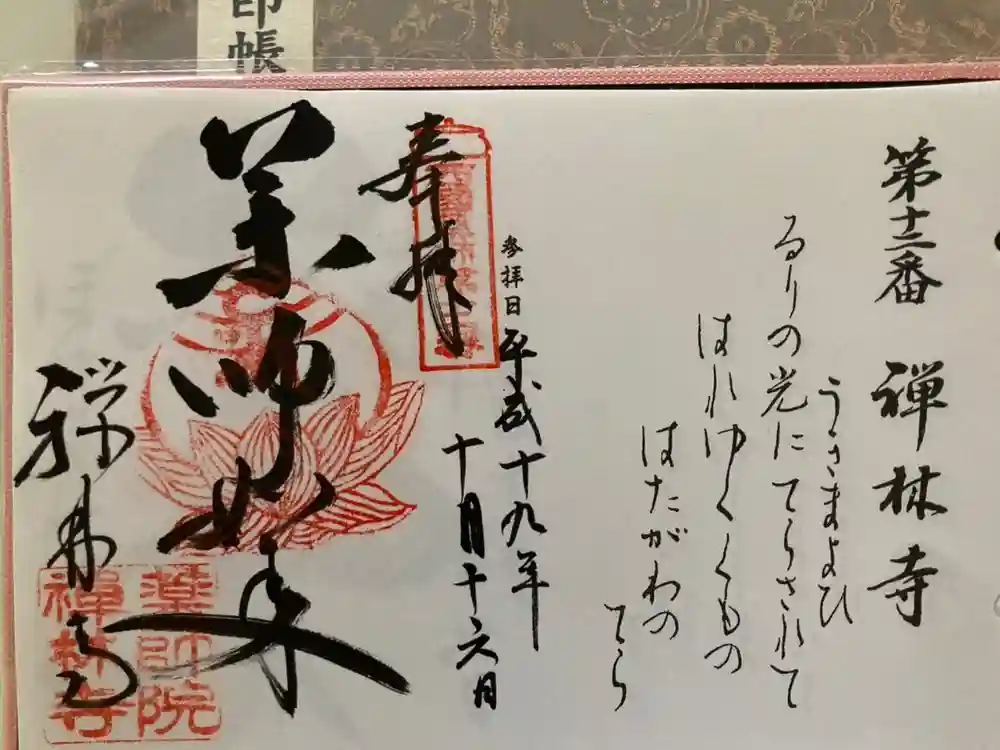 印帳
第十二番 禅林寺
るりの光にてらされて
うさまよひ
はれゆくくもの
はたがわの
てら
参拝日 平成十九年
十月十六月
奉拝
薬師如来
禅林寺
薬師院
禅林寺